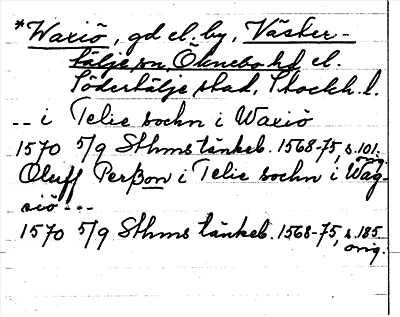 *Waxiö, gd el. by, Väster-
tälje sn, Öknebo hd el.
Södertälje stad, Stockh. l.
-- i Telie sochn i Waxiö
1570 5/9 Sthms tänkeb. 1568-75, s. 101.
Oluff Perßon i Telie sochn i Wag-
siö ---
1570 5/9 Sthms tänkeb. 1568-75, s. 185
orig.